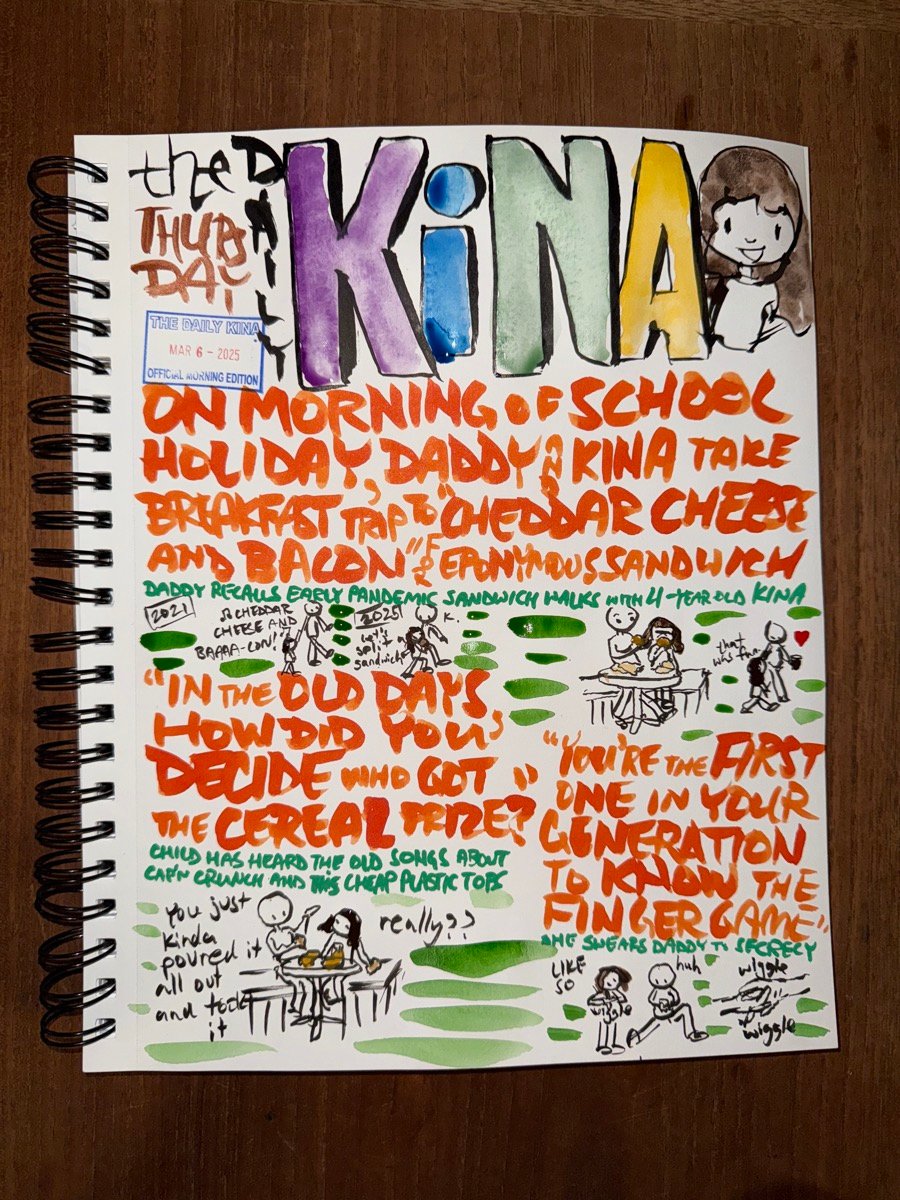 the DAILY KiNA
THURSDAY
THE DAILY KINA
MAR 6 - 2025
OFFICIAL MORNING EDITION
ON MORNING OF SCHOOL
HOLIDAY, DADDY AND KINA TAKE
BREAKFAST TRIP TO "CHEDDAR CHEESE
AND BACON" FOR EPONYMOUS SANDWICH
DADDY RECALLS EARLY PANDEMIC SANDWICH WALKS WITH 4-YEAR OLD KINA
2021
CHEDDAR
CHEESE AND
BAAAA-CON!
2025
let's
split a
sandwich
K.
that
was fun
"IN THE OLD DAYS,
HOW DID YOU
DECIDE WHO GOT
THE CEREAL PRIZE?"
CHILD HAS HEARD THE OLD SONGS ABOUT
CAP'N CRUNCH AND HIS CHEAP PLASTIC TOPS
you just
kinda
poured it
all out
and took
it
really??
"YOU'RE THE FIRST
ONE IN YOUR
GENERATION
TO KNOW THE
FINGER GAME"
SHE SWEARS DADDY TO SECRECY
LIKE
SO
wiggle
huh
wiggle
wiggle